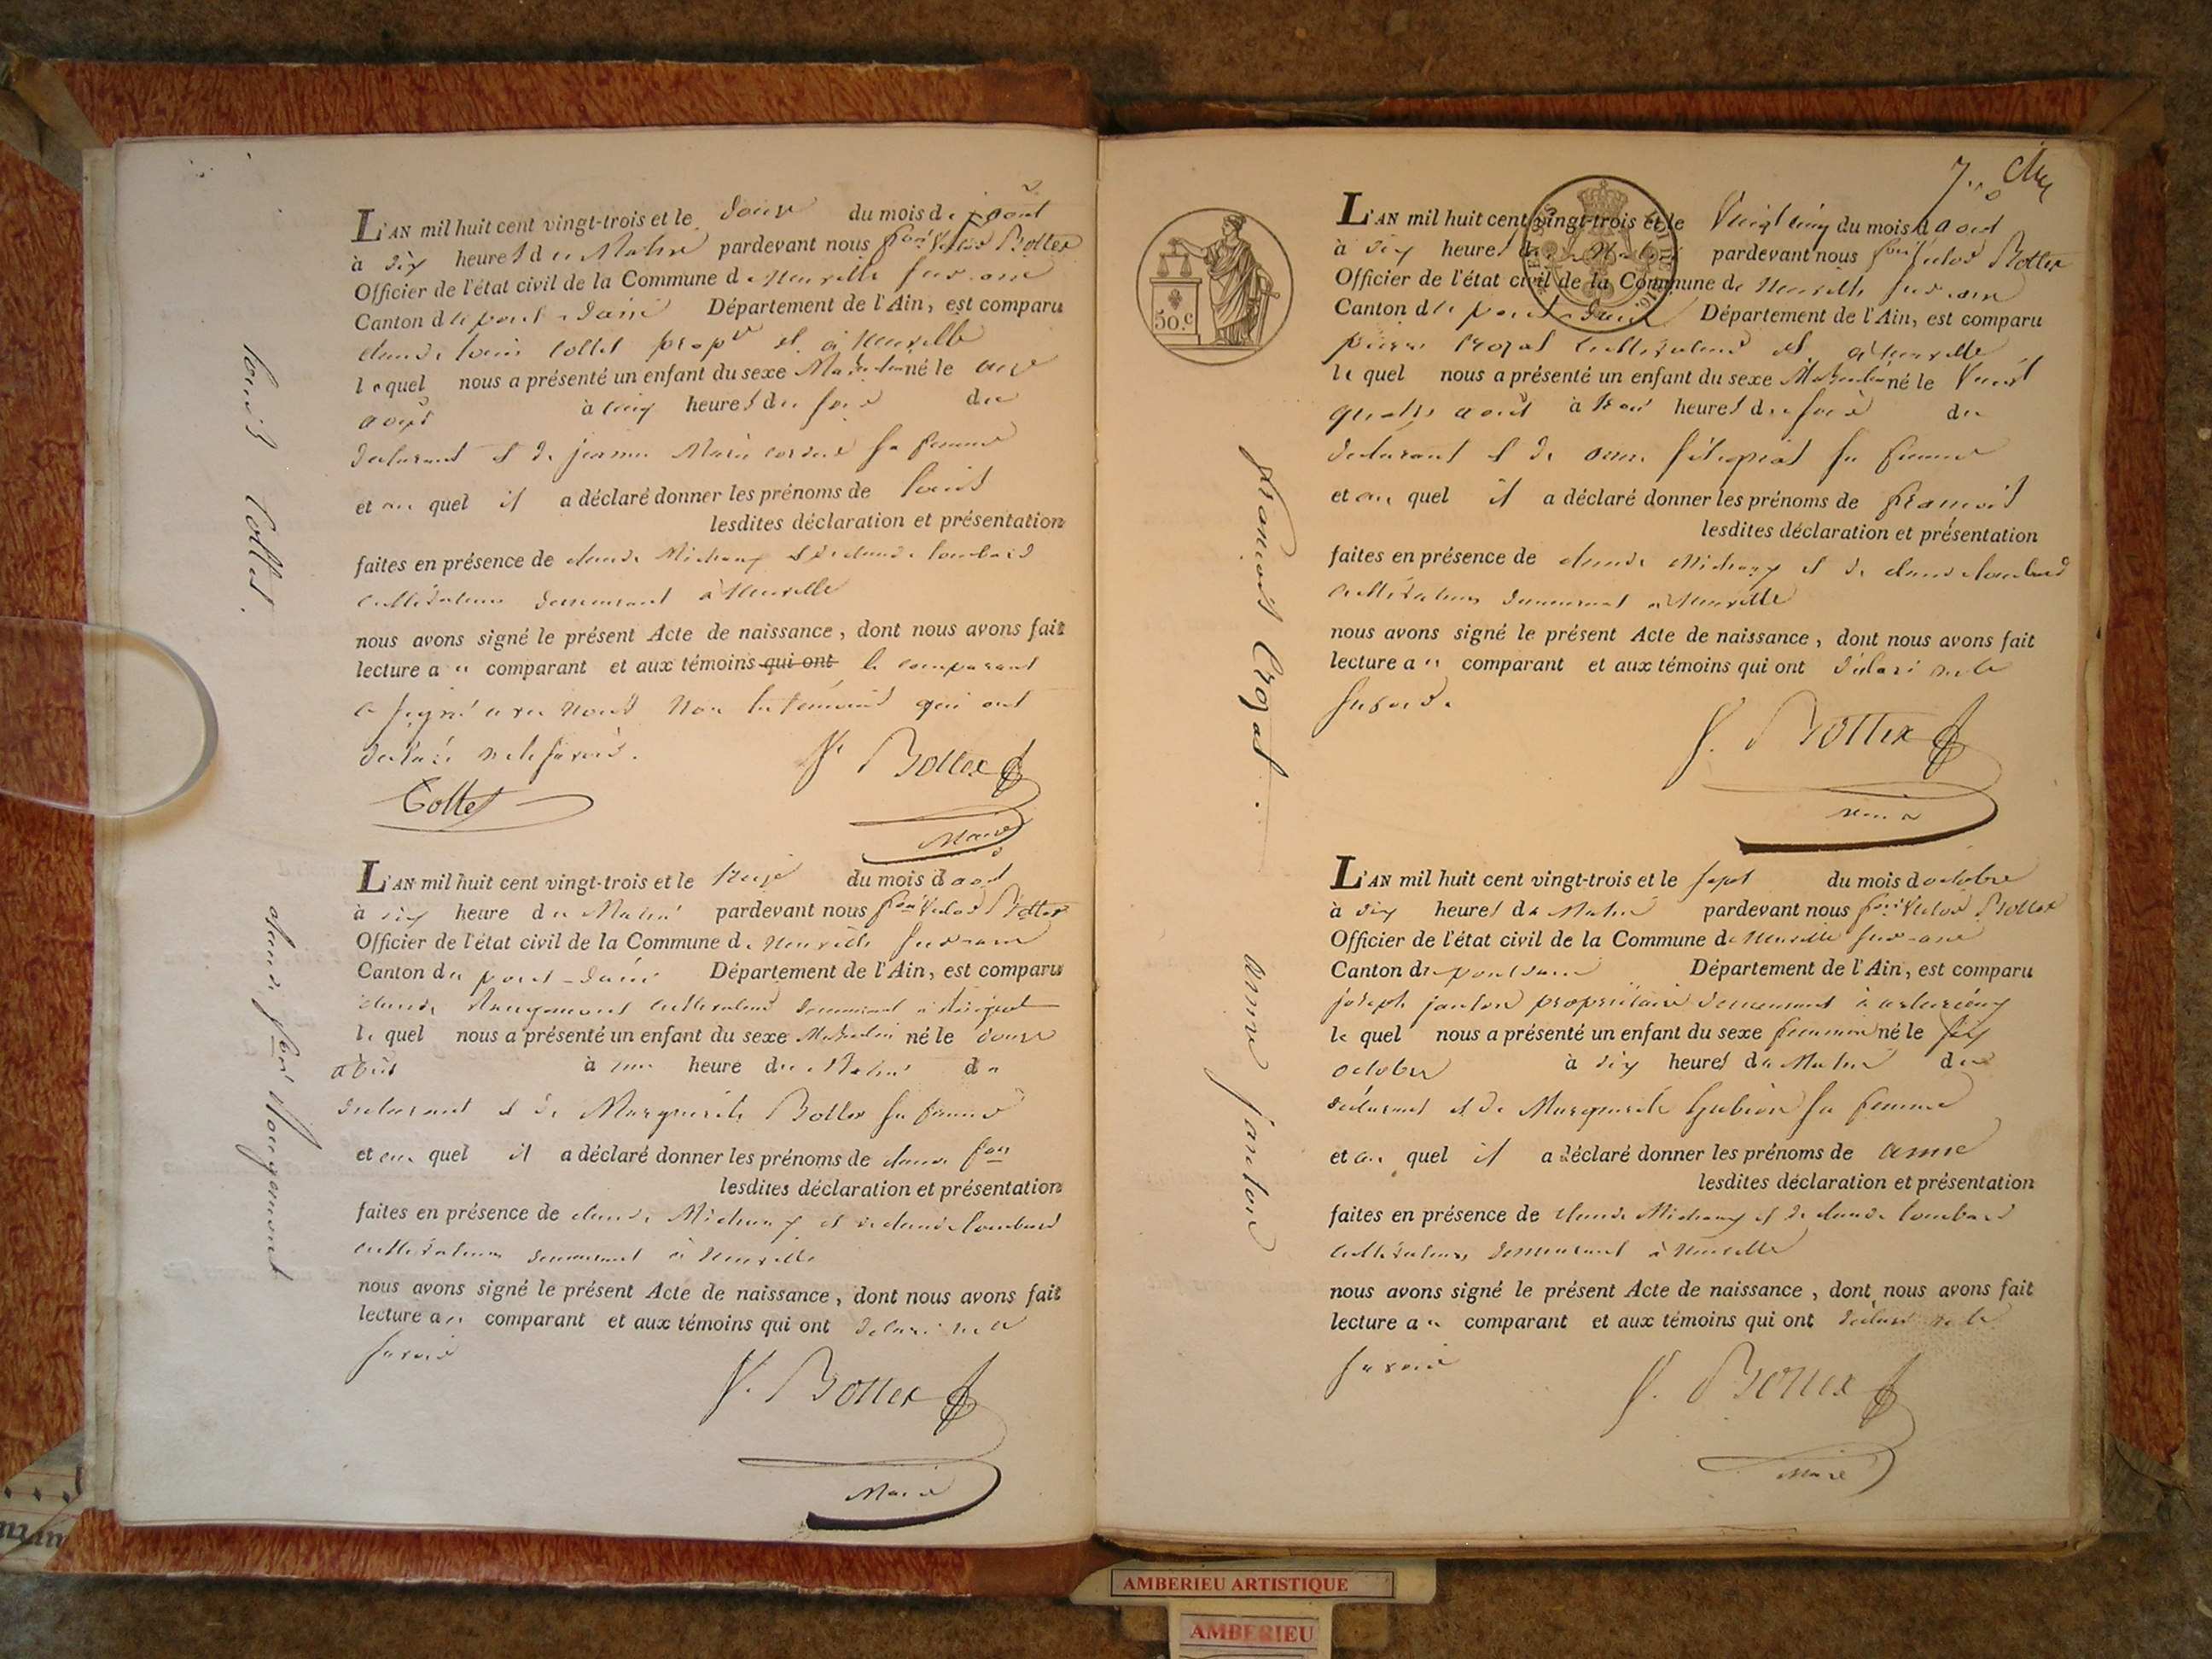 L'AN mil huit cent vingt-trois et le douze du mois d'aout
à dix heures du Matin pardevant nous fçois Victor Bottex
Officier de l'état civil de la Commune de Neuville sur ain
Canton de pont-d'ain Département de l'Ain, est comparu
claude louis Collet propre à Neuville
lequel nous a présenté un enfant du sexe Masculin né le onze
aout à cinq heures du soir du
declarant et de jeanne Marie sa femme
et au quel il a déclaré donner les prénoms de louis
lesdites déclaration et présentation
faites en présence de claude Michaux et de claude lombard
cultivateurs demeurant à Neuville
nous avons signé le présent Acte de naissance, dont nous avons fait
lecture au comparant et aux témoins qui ont le comparant
a signé avec nous non les témoins qui ont
declaré ne le savoir.
V. Bottex
Collet
Maire
louis Collet.
L'AN mil huit cent vingt-trois et le treize du mois d'aout
à dix heure du Matin pardevant nous fçois Victor Bottex
Officier de l'état civil de la Commune de Neuville sur ain
Canton du pont-d'ain Département de l'Ain, est comparu
claude cultivateur demeurant à
le quel nous a présenté un enfant du sexe Masculin né le douze
aout à une heure du Matin du
declarant et de Marguerite Bottex sa femme
et au quel il a déclaré donner les prénoms de claude fçois
lesdites déclaration et présentation
faites en présence de claude Michaux et de claude lombard
cultivateurs demeurant à Neuville
nous avons signé le présent Acte de naissance, dont nous avons fait
lecture au comparant et aux témoins qui ont declaré ne le
savoir
V. Bottex
Maire
claude fçois
50.c
L'AN mil huit cent vingt-trois et le Vingt cinq du mois d aout
à dix heures du Matin pardevant nous fçois Victor Bottex
Officier de l'état civil de la Commune de Neuville sur ain
Canton de pont-d'ain Département de l'Ain, est comparu
pierre Crozat cultivateur à Neuville
le quel nous a présenté un enfant du sexe Masculin né le Vingt
quatre aout à trois heures du soir du
declarant et de anne sa femme
et au quel il a déclaré donner les prénoms de francois
lesdites déclaration et présentation
faites en présence de claude Michaux et de claude lombard
cultivateurs demeurant à Neuville
nous avons signé le présent Acte de naissance, dont nous avons fait
lecture au comparant et aux témoins qui ont déclaré ne le
savoir
V. Bottex
Maire
francois Crozat.
L'AN mil huit cent vingt-trois et le sept du mois d'octobre
à dix heures du Matin pardevant nous fçois Victor Bottex
Officier de l'état civil de la Commune de Neuville sur ain
Canton de pont d'ain Département de l'Ain, est comparu
joseph janton propriétaire demeurant à
le quel nous a présenté un enfant du sexe feminin né le six
octobre à dix heures du Matin du
déclarant et de Marguerite Gubian sa femme
et au quel il a déclaré donner les prénoms de anne
lesdites déclaration et présentation
faites en présence de claude Michaux et de claude lombard
cultivateurs demeurant à Neuville
nous avons signé le présent Acte de naissance, dont nous avons fait
lecture au comparant et aux témoins qui ont déclaré ne le
savoir
V. Bottex
Maire
anne janton
AMBERIEU ARTISTIQUE
AMBERIEU